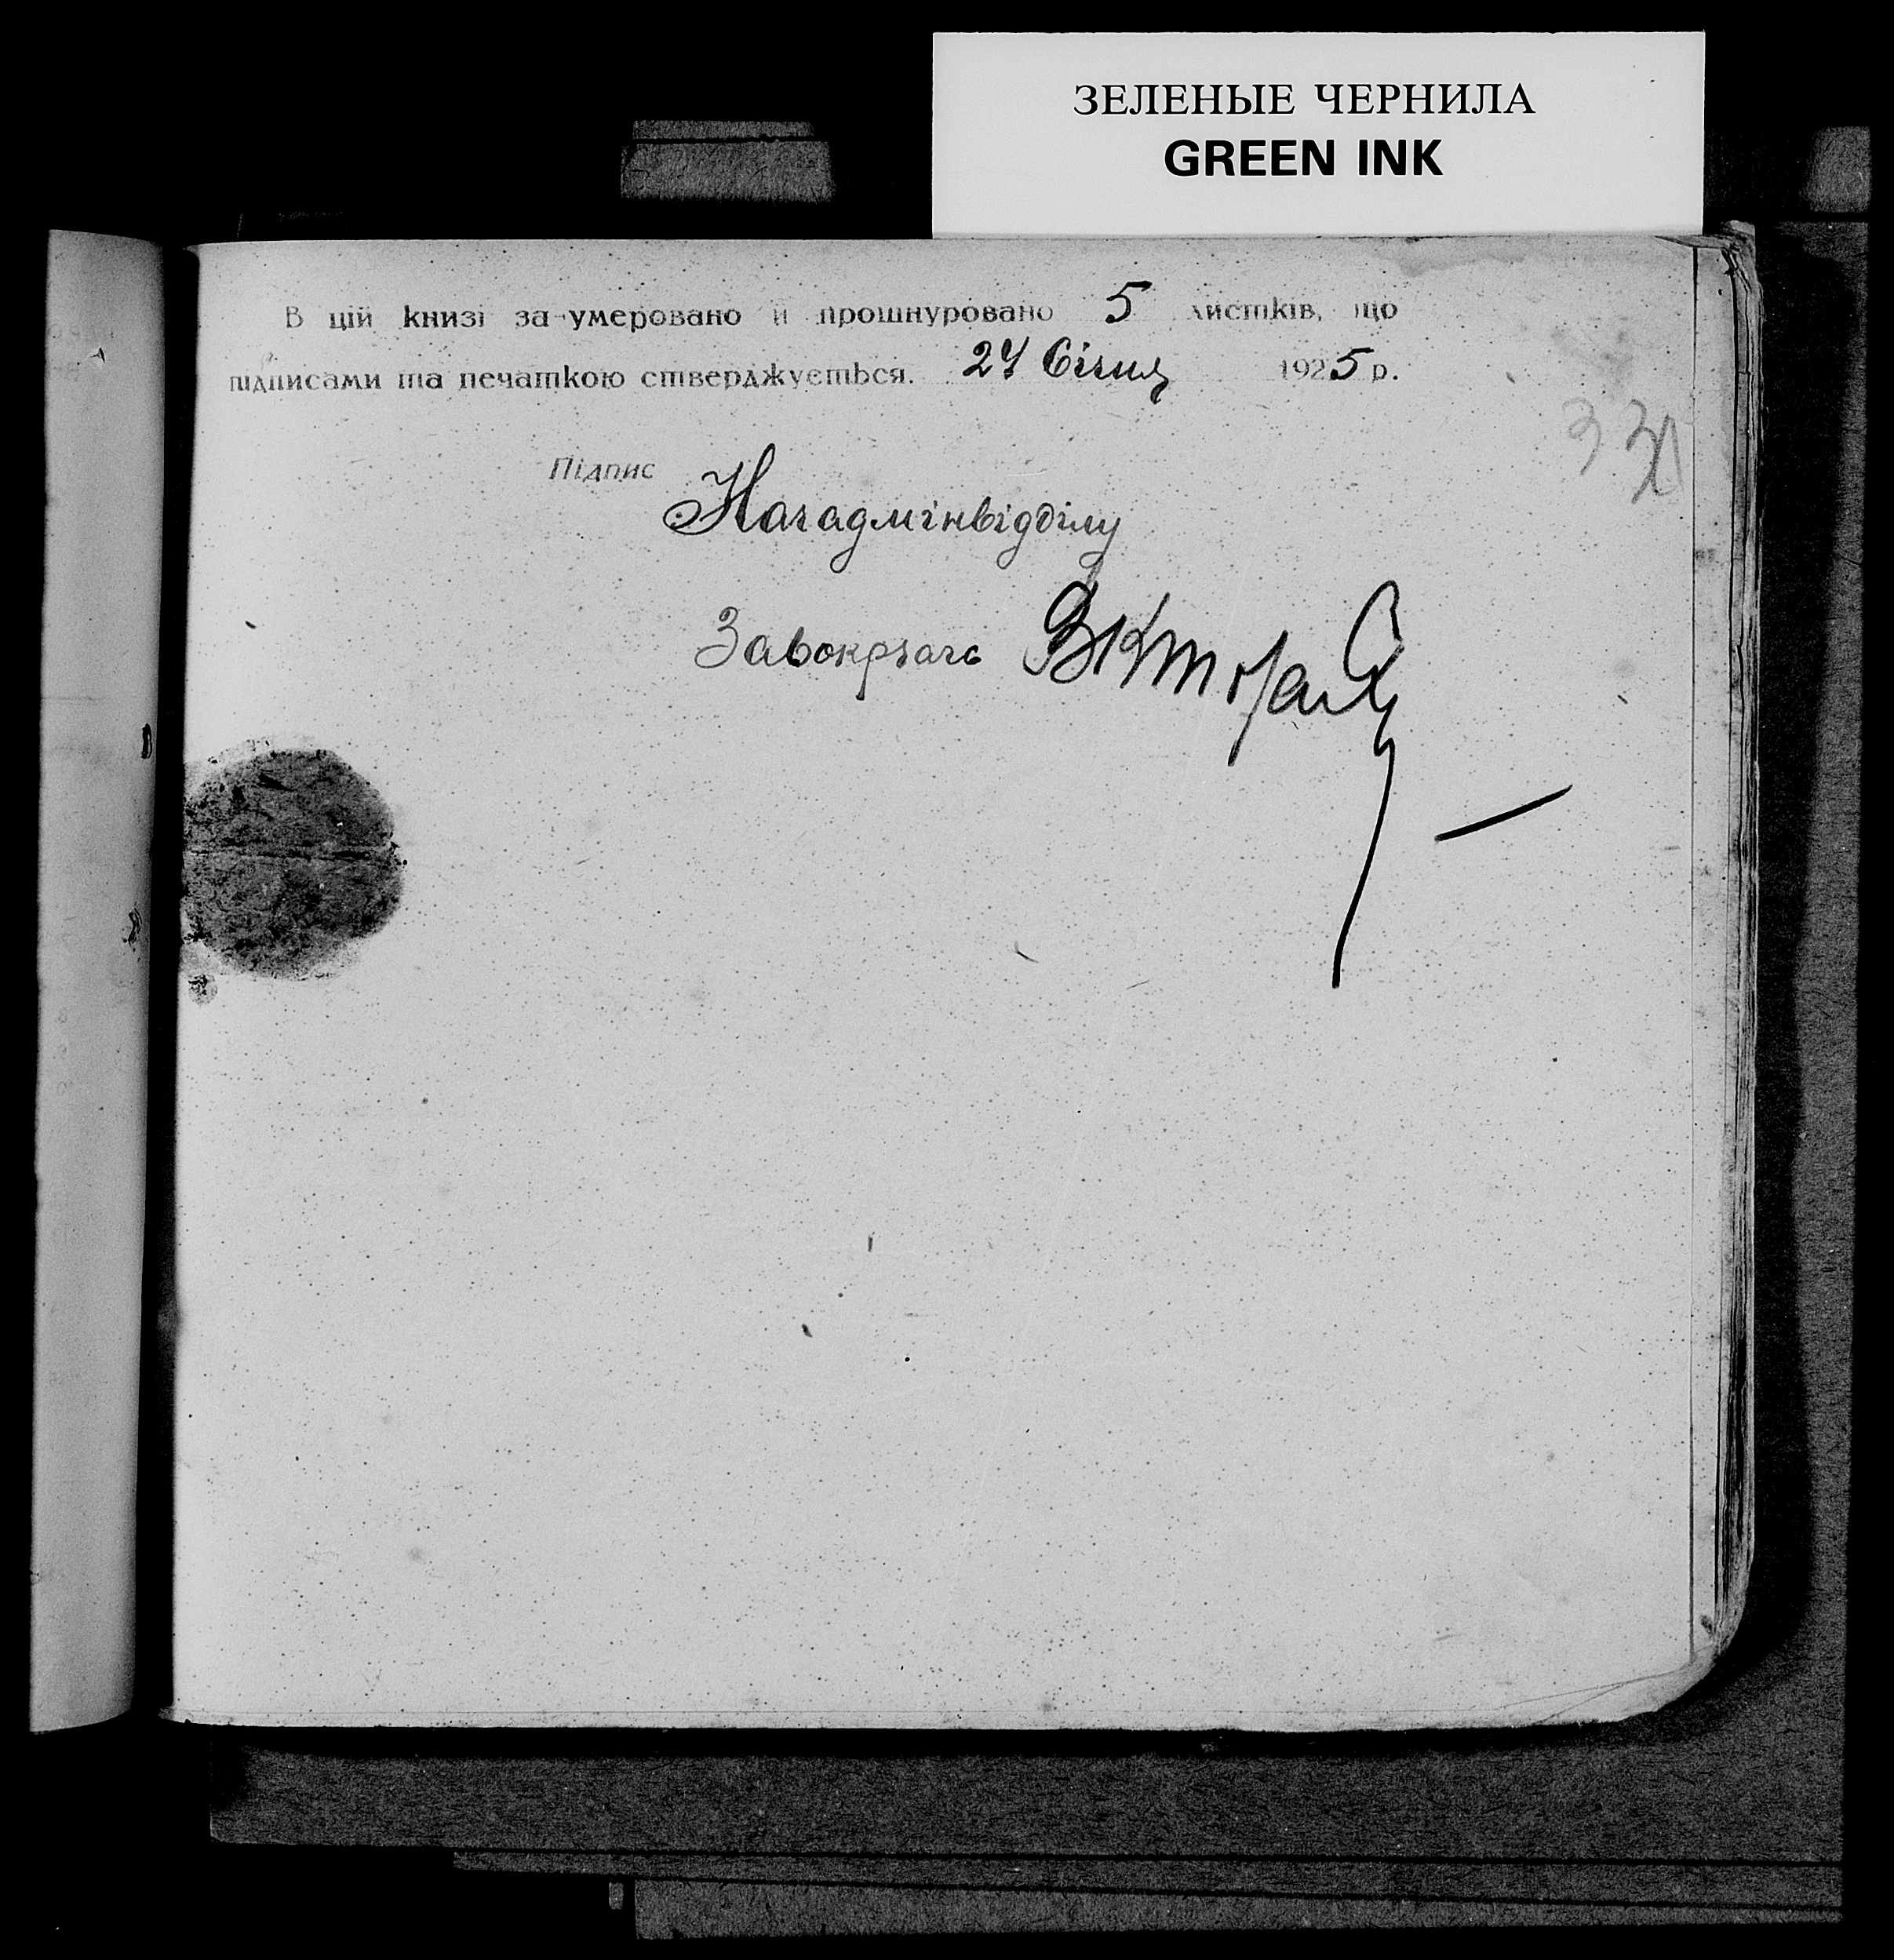 ЗЕЛЕНЫЕ ЧЕРНИЛА
GREEN INK
В цій книзі за умеровано й прошнуровано 5 листків, що
підписами та печаткою стверджується. 27 Січня 1925 р.
Підпис
Начадмінвідділу
Завокрзагс